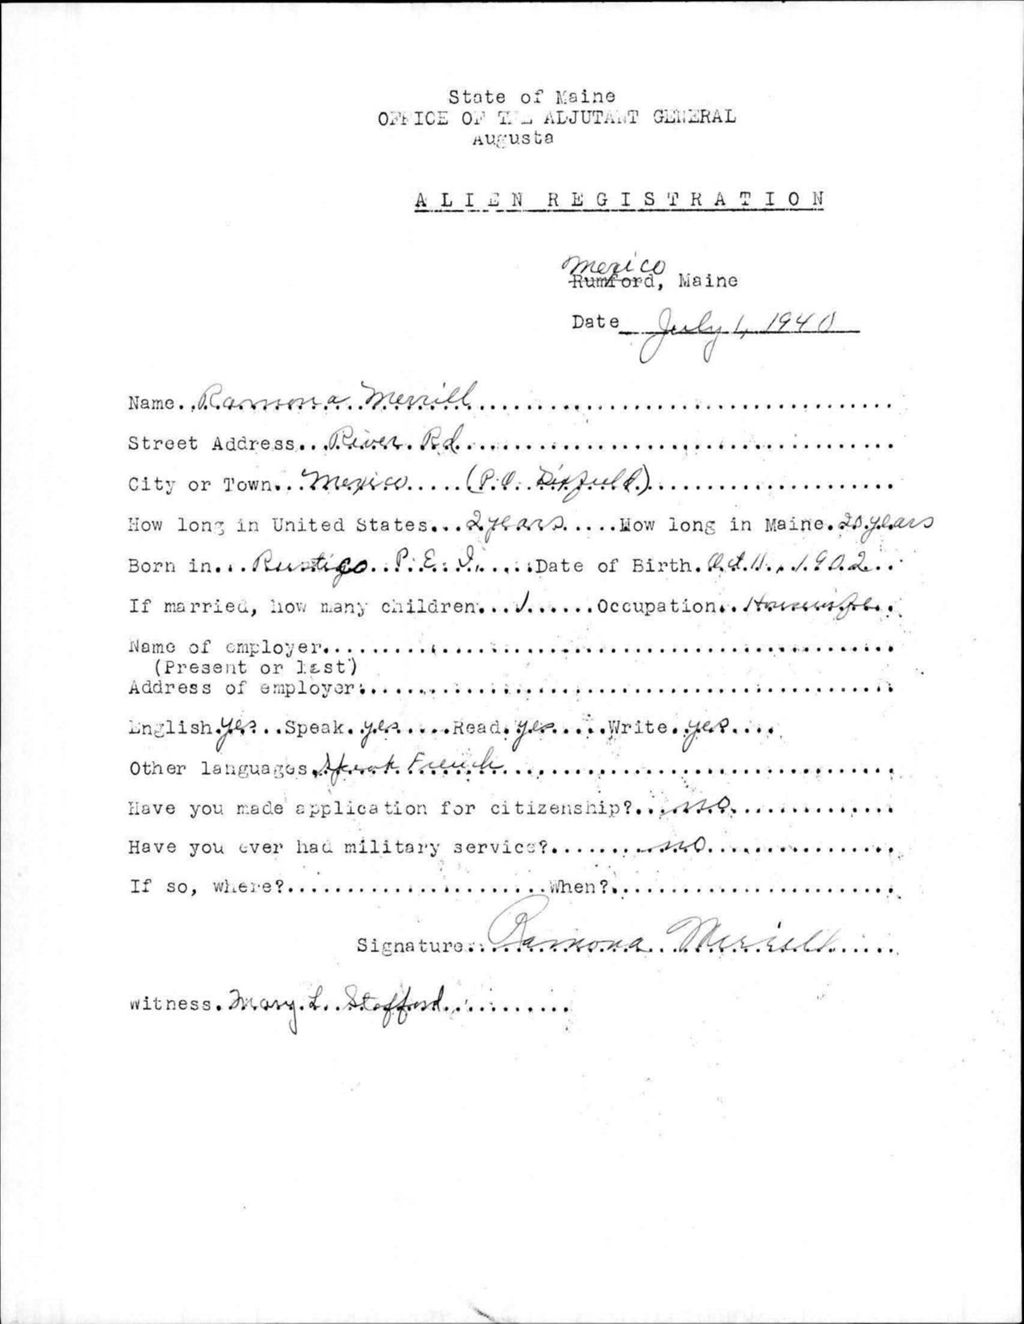 State of Maine
OFFICE OF THE ADJUTANT GENERAL
Augusta
ALIEN REGISTRATION
Mexico
Rumford, Maine
Date July 1, 1940
Name Ramona Merrill
Street Address River Rd
City or Town Mexico (P.O. Dixfield)
How long in United States 2 years How long in Maine 20 years
Born in Rustigo P.E.I. Date of Birth Oct 11, 1902
If married, how many children 1 Occupation Housewife
Name of employer
(Present or last)
Address of employer
English yes Speak yes Read yes Write yes
Other languages Speak French
Have you made application for citizenship? no
Have you ever had military service? no
If so, where? When?
Signature Ramona Merrill
Witness Mary L. Stafford